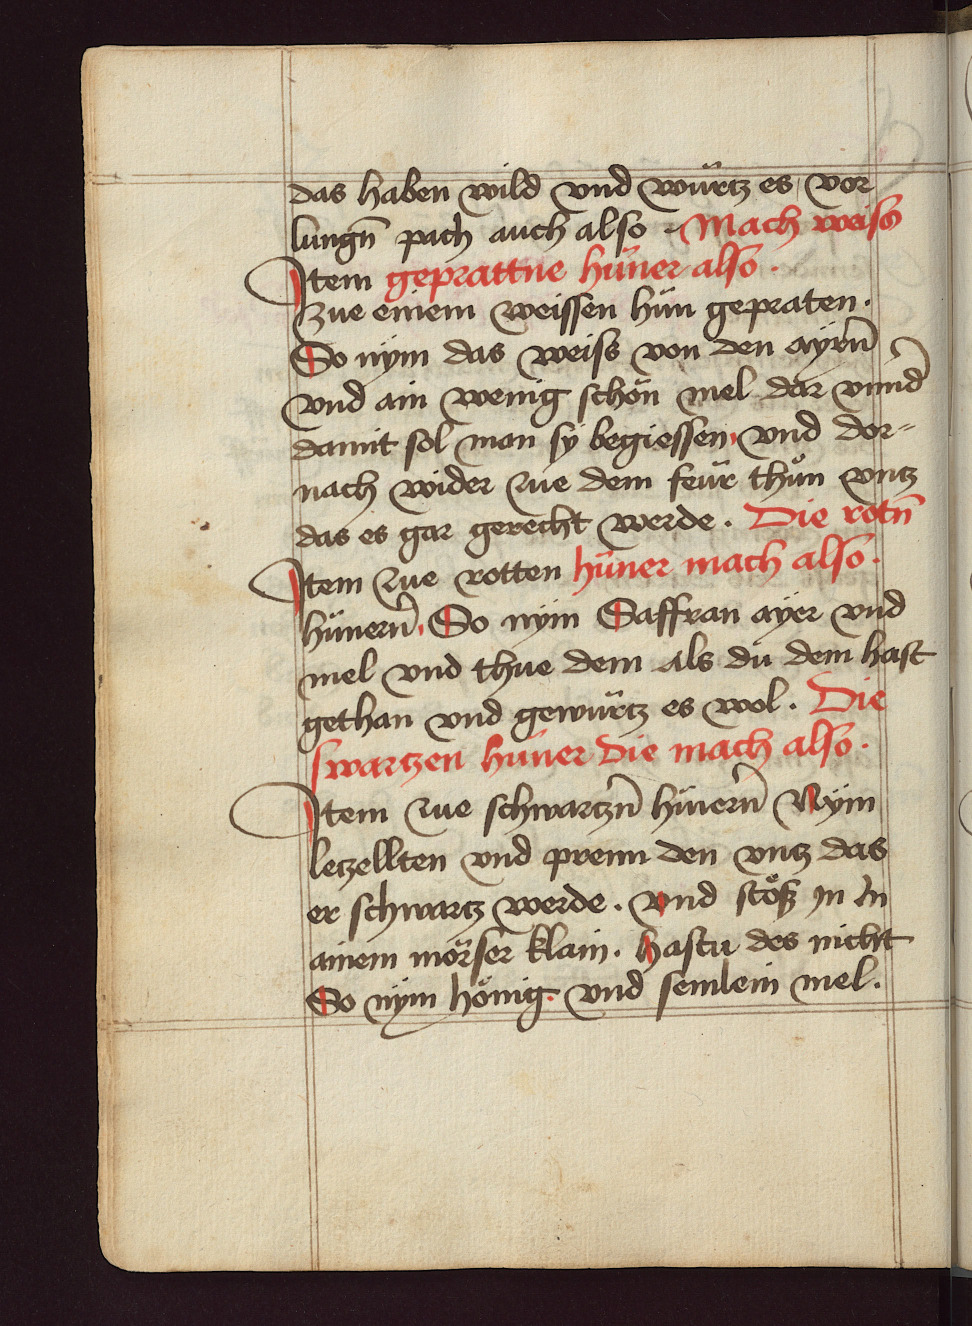 das haben wild vnd würtz es vor
lungn̄ pach auch also . Mach weiss
Item geprattne hüner also .
Zue einem weissen hün gepraten .
So nÿm das weiss von den aÿrn̄
vnd ain wenig schön mel dar vnnd
damit sol man sÿ begiessen , vnd dor=
nach wider zue dem feür thün vntz
das es gar gerecht werde . Die rotn̄
Item zue rotten hüner mach also .
hünern̄ , So nÿm Saffran aÿer vnd
mel vnd thue dem als dü dem hast
gethan vnd gewürtz es wol . Die
swartzen hüner die mach also .
Item zue schwartzn̄ hünern̄ Nÿm
letzellten vnd prenn den vntz das
er schwartz werde . vnd stöß in In
ainem mörser klain . hastu des nicht
So nÿm hönig . vnd semlein mel .